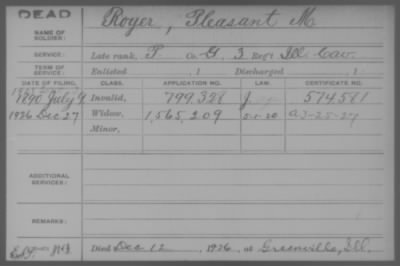 DEAD
Royer, Pleasant M.
NAME OF
SOLDIER:
SERVICE:
Late rank, P Co. G, 3 Reg't Ill. Cav.
TERM OF
SERVICE:
Enlisted , 1 Discharged , 1
DATE OF FILING. CLASS. APPLICATION NO. LAW. CERTIFICATE NO.
1890 July 9 Invalid, 799.328 J 574.581
1926 Dec 27 Widow, 1,565,209 5-1-20 A-3-25-27
Minor,
ADDITIONAL
SERVICES:
REMARKS:
Died Dec 12, 1926, at Greenville, Ill.